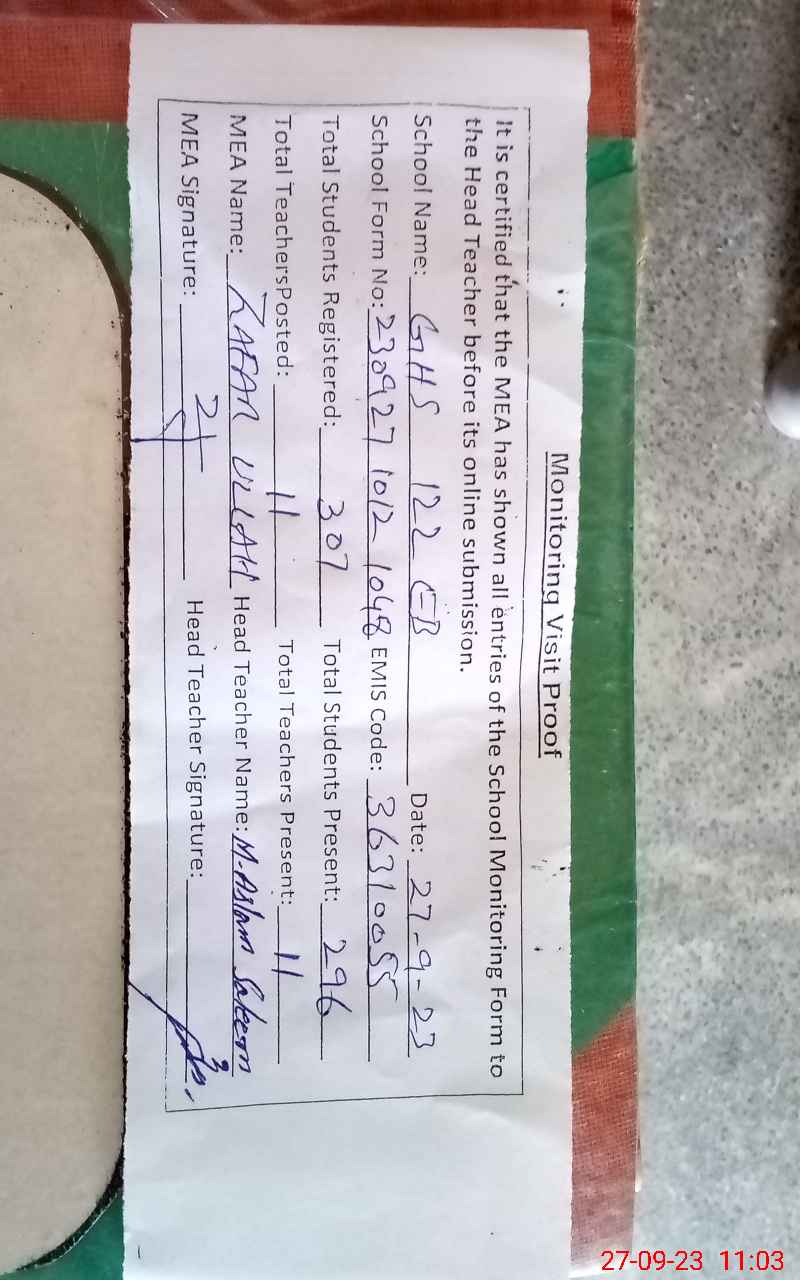 Monitoring Visit Proof
It is certified that the MEA has shown all entries of the School Monitoring Form to
the Head Teacher before its online submission.
School Name: GHS 122 EB Date: 27-9-23
School Form No: 230927 1012 1048 EMIS Code: 36310055
Total Students Registered: 307 Total Students Present: 296
Total TeachersPosted: 11 Total Teachers Present: 11
MEA Name: ZAFAR ULLAH Head Teacher Name: M. Aslam Saleem
MEA Signature: Head Teacher Signature:
27-09-23 11:03